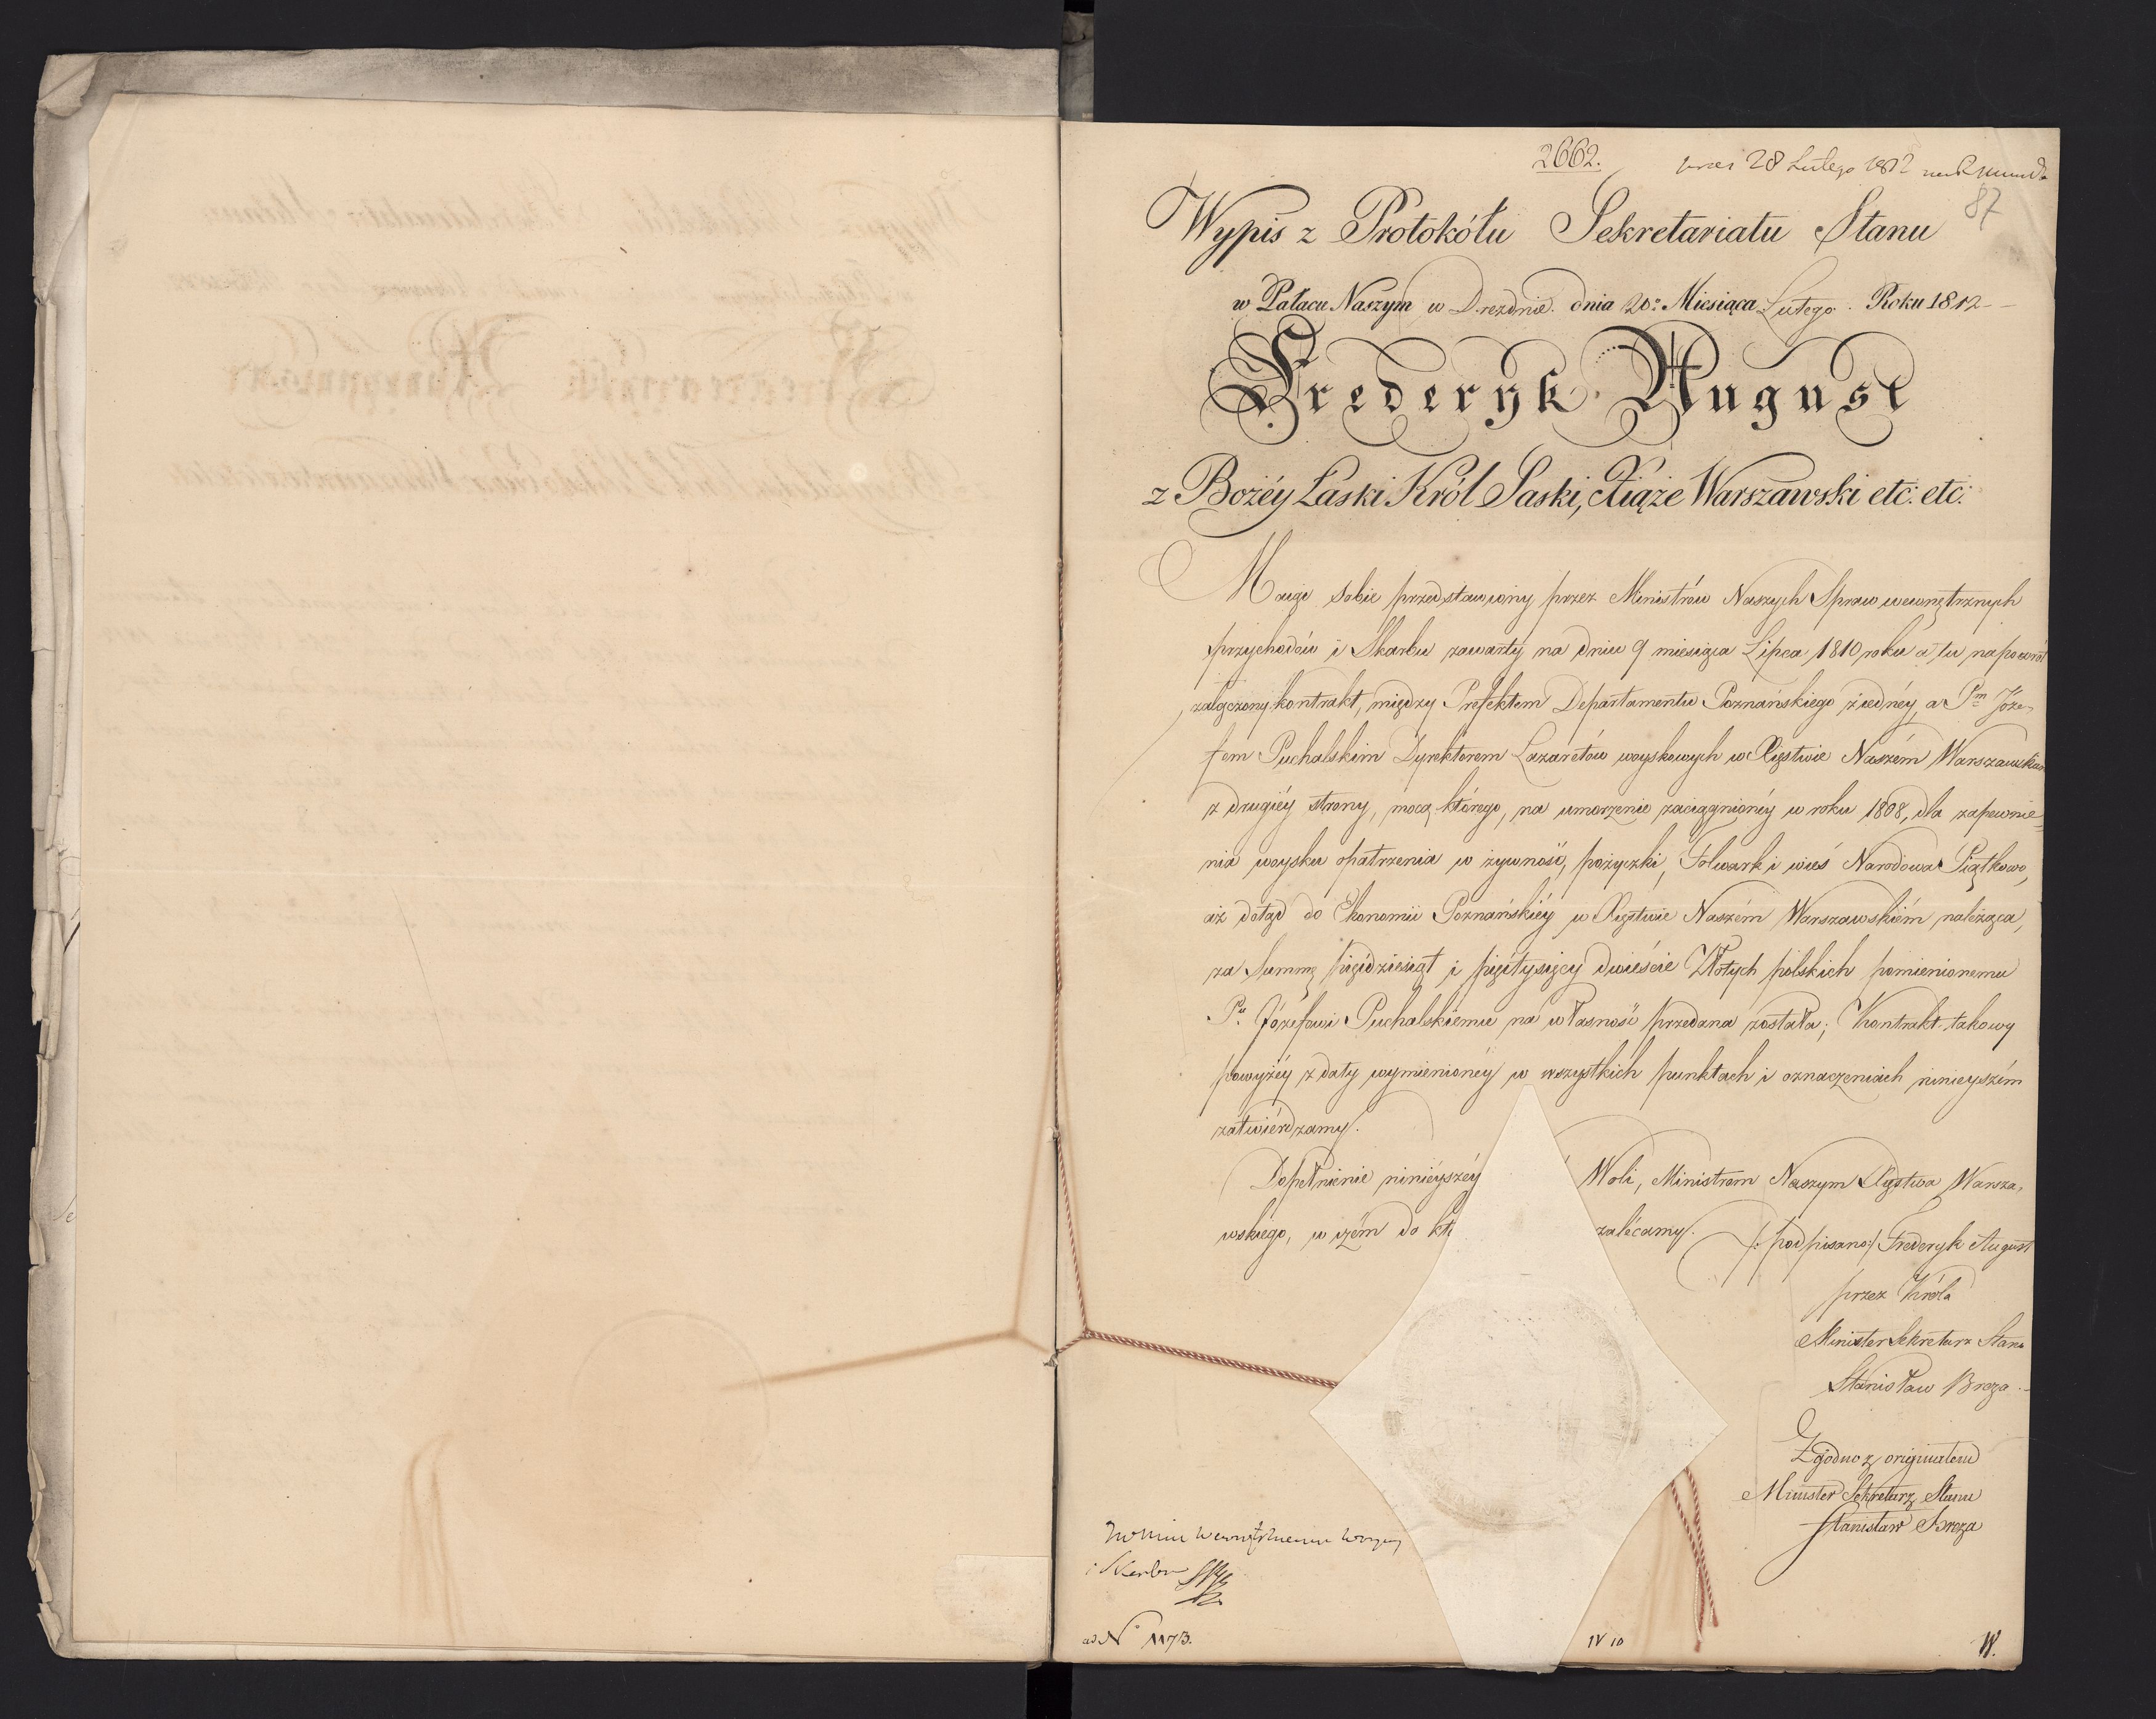 2662.
28 Lutego 1812
87
Wypis z Protokółu Sekretariatu Stanu
w Pałacu Naszym w Dreznie. dnia 20: Miesiąca Lutego. Roku 1812
Frederyk August
z Bożéy Łaski Król Saski, Xiąże Warszawski etc: etc:
Maiąc sobie przedstawiony przez Ministrów Naszych Spraw wewnętrznych
przychodów i Skarbu zawarty na dniu 9 miesiąca Lipca 1810 roku a tu napowrót
załączony kontrakt, między Prefektem Departamentu Poznańskiego z iednéy, a Pm Józe-
fem Puchalskim Dyrektorem Lazaretów woyskowych w Xięstwie Naszém Warszawskiém
z drugiéy strony, mocą którego, na umorzenie zaciągnionéy w roku 1808, dla zapewnie=
nia woysku opatrzenia w żywność, pożyczki, Folwark i wieś Narodowa Piątkowo,
aż dotąd do Ekonomii Poznańskiéy w Xięstwie Naszém Warszawskiém należąca,
za Summę pięćdziesiąt i pięć tysięcy dwieście Złotych polskich pomienionemu
Pu. Józefowi Puchalskiemu na własność przedana została; Kontrakt takowy
powyżéy z daty wymienionéy w wszystkich punktach i oznaczeniach ninieyszém
zatwiérdzamy.
Dopełnienie ninieyszéy Woli, Ministrom Naszym Xięstwa Warsza-
wskiego, w czém do kt zalécamy. /: podpisano:/ Frederyk August
przez Króla
Minister Sekretarz Stanu
Stanisław Breza.
Zgodno z originałem
Minister Sekretarz Stanu
Stanisław Breza
i Skarbu
ad No 1173.
IV 10
W.